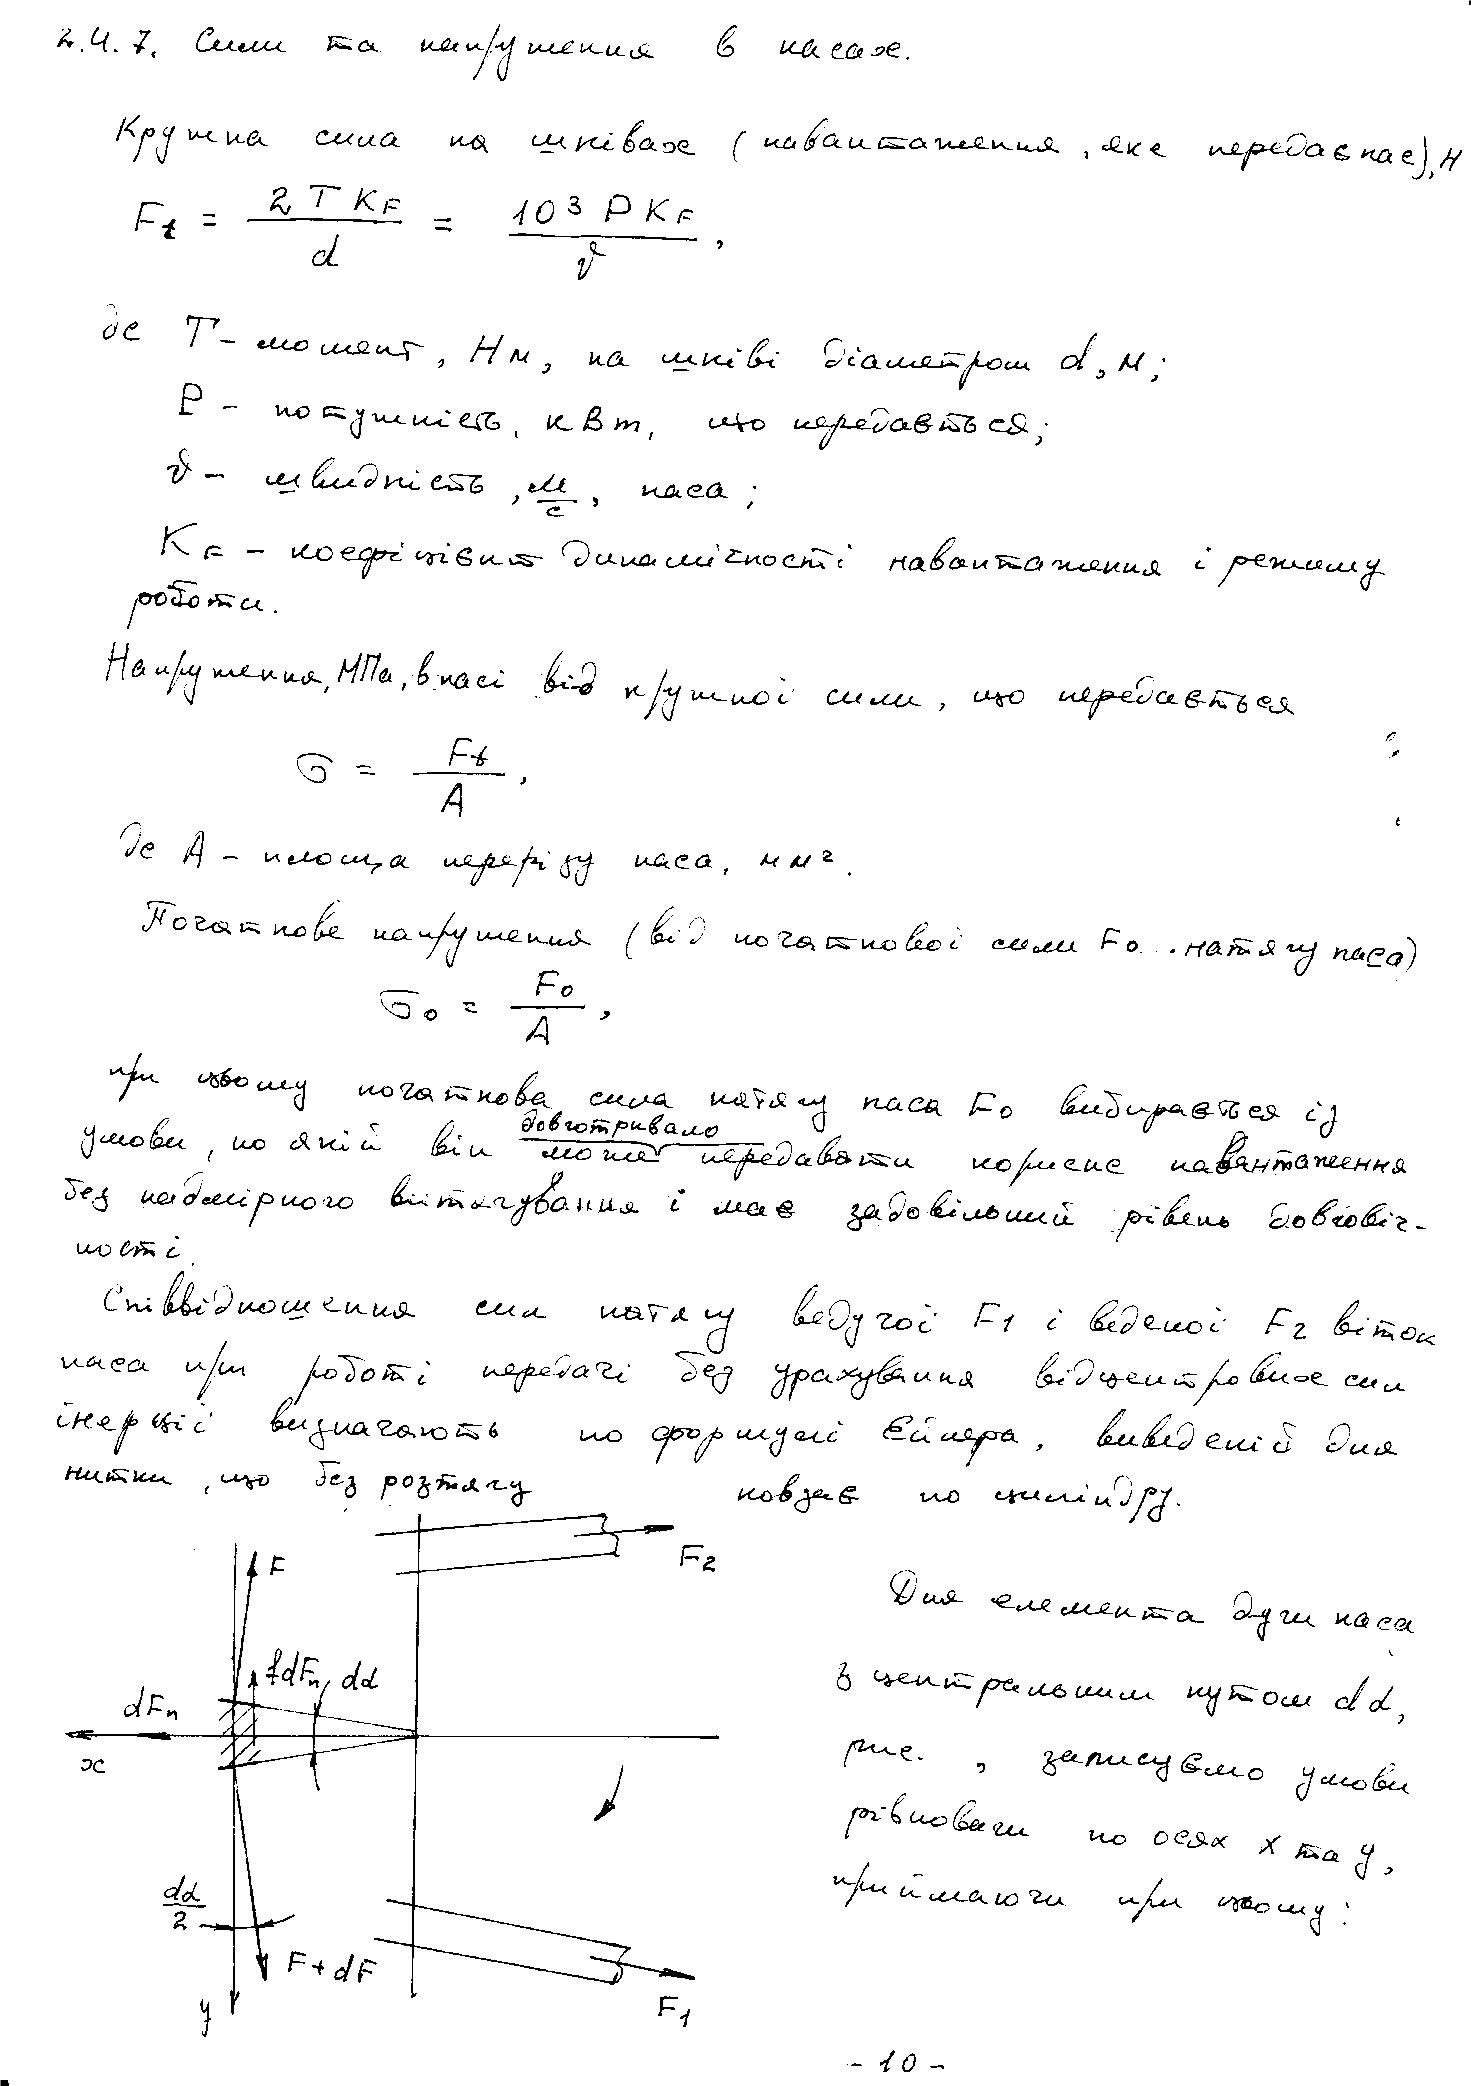 2.4.7. Сили та напруження в пасах.
Кружна сила на шківах (навантаження, яке передає пас), Н
Ft = 2 T KF / d = 10³ P KF / v,
де T – момент, Нм, на шківі діаметром d, м;
P – потужність, кВт, що передається;
v – швидкість, м/с, паса;
KF – коефіцієнт динамічності навантаження і режиму
роботи.
Напруження, МПа, в пасі від кружної сили, що передається
σ = Ft / A,
де A – площа перерізу паса, мм².
Початкове напруження (від початкової сили F0 натягу паса)
σ0 = F0 / A,
при цьому початкова сила натягу паса F0 вибирається із
умови, по якій він може довготривало передавати корисне навантаження
без надмірного витягування і має задовільний рівень довговіч-
ності.
Співвідношення сил натягу ведучої F1 і веденої F2 віток
паса при роботі передачі без урахування відцентрових сил
інерції визначають по формулі Ейлера, виведеній для
нитки, що без розтягу ковзає по циліндру.
F
F2
fdFn, dα
dFn
x
dα/2
F + dF
y
F1
Для елемента дуги паса
з центральним кутом dα,
рис. , записуємо умови
рівноваги по осях x та y,
приймаючи при цьому:
- 10 -